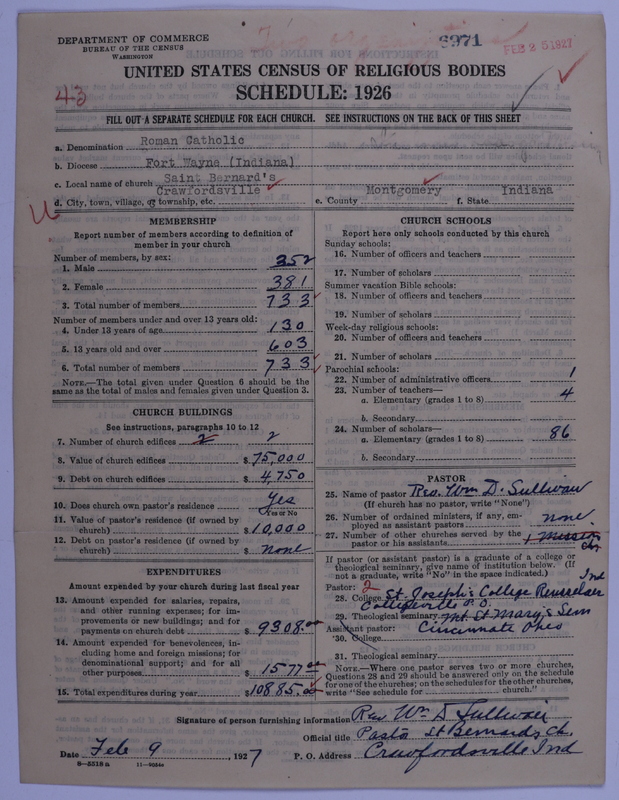 DEPARTMENT OF COMMERCE
BUREAU OF THE CENSUS
WASHINGTON
6971
FEB 25 1927
UNITED STATES CENSUS OF RELIGIOUS BODIES
SCHEDULE: 1926
43
FILL OUT A SEPARATE SCHEDULE FOR EACH CHURCH. SEE INSTRUCTIONS ON THE BACK OF THIS SHEET
a. Denomination Roman Catholic
b. Diocese Fort Wayne (Indiana)
c. Local name of church Saint Bernard's
d. City, town, village, or township, etc. Crawfordsville e. County Montgomery f. State Indiana
MEMBERSHIP
Report number of members according to definition of
member in your church
Number of members, by sex:
1. Male 352
2. Female 381
3. Total number of members 733
Number of members under and over 13 years old:
4. Under 13 years of age 130
5. 13 years old and over 603
6. Total number of members 733
NOTE.—The total given under Question 6 should be
same as the total of males and females given under Question 3.
CHURCH BUILDINGS
See instructions, paragraphs 10 to 12
7. Number of church edifices 2 2
8. Value of church edifices $ 75,000
9. Debt on church edifices $ 4,750
10. Does church own pastor's residence Yes
Yes or No
11. Value of pastor's residence (if owned by
church) $ 10,000
12. Debt on pastor's residence (if owned by
church) $ none
EXPENDITURES
Amount expended by your church during last fiscal year
13. Amount expended for salaries, repairs,
and other running expenses; for im-
provements or new buildings; and for
payments on church debt $ 9308.00
14. Amount expended for benevolences, in-
cluding home and foreign missions; for
denominational support; and for all
other purposes $ 1577.00
15. Total expenditures during year $ 10885.00
CHURCH SCHOOLS
Report here only schools conducted by this church
Sunday schools:
16. Number of officers and teachers
17. Number of scholars
Summer vacation Bible schools:
18. Number of officers and teachers
19. Number of scholars
Week-day religious schools:
20. Number of officers and teachers
21. Number of scholars
Parochial schools:
22. Number of administrative officers 1
23. Number of teachers—
a. Elementary (grades 1 to 8) 4
b. Secondary
24. Number of scholars—
a. Elementary (grades 1 to 8) 86
b. Secondary
PASTOR
25. Name of pastor Rev. Wm D. Sullivan
(If church has no pastor, write "None")
26. Number of ordained ministers, if any, em-
ployed as assistant pastors none
27. Number of other churches served by the
pastor or his assistants 1 Mission
Ch.
If pastor (or assistant pastor) is a graduate of a college or
theological seminary, give name of institution below. (If
not a graduate, write "No" in the space indicated.)
Pastor: 2 Ind
28. College St. Joseph's College Rensselaer
Collegeville P.O.
29. Theological seminary Mt. St Mary's Sem
Assistant pastor: Cincinnate Ohio
30. College
31. Theological seminary
NOTE.—Where one pastor serves two or more churches,
Questions 28 and 29 should be answered only on the schedule
for one of the churches; on the schedules for the other churches,
write "See schedule for church."
Signature of person furnishing information Rev Wm D Sullivan
Official title Pastor St Bernards Ch.
Date Feb 9, 1927 P. O. Address Crawfordsville Ind
8—5518a 11—9054a